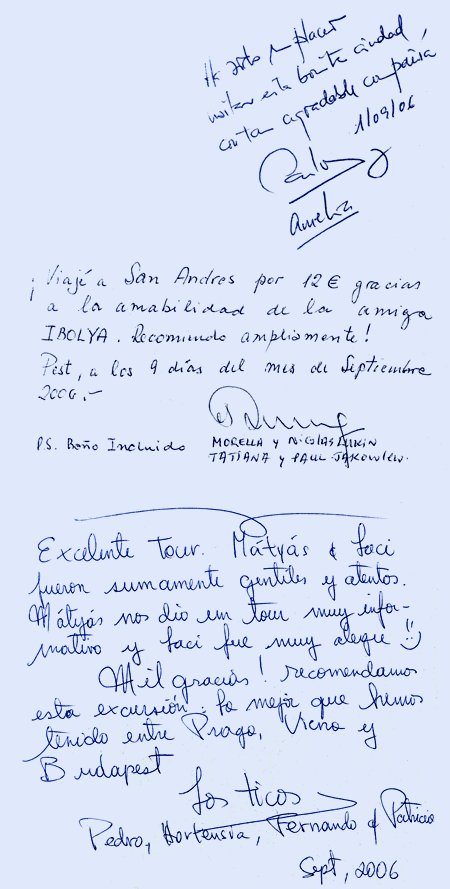 Ha sido un placer
visitar esta bonita ciudad,
con tan agradable compañía
1/09/06
Carlos
Amelia
¡Viajé a San Andres por 12 € gracias
a la amabilidad de la amiga
IBOLYA. Recomiendo ampliamente!
Pest, a los 9 días del mes de Septiembre
2006.-
P.S. Baño Incluido
MORELLA y NICOLAS
TATIANA y PAUL JAKOWLEW.
Excelente Tour. Mátyás & Laci
fueron sumamente gentiles y atentos.
Mátyás nos dio un tour muy infor-
mativo y Laci fue muy alegre
Mil gracias! recomendamos
esta excursión. Lo mejor que hemos
tenido entre Praga, Viena y
Budapest
Los ticos
Pedro, Hortensia, Fernando & Patricia
Sept, 2006